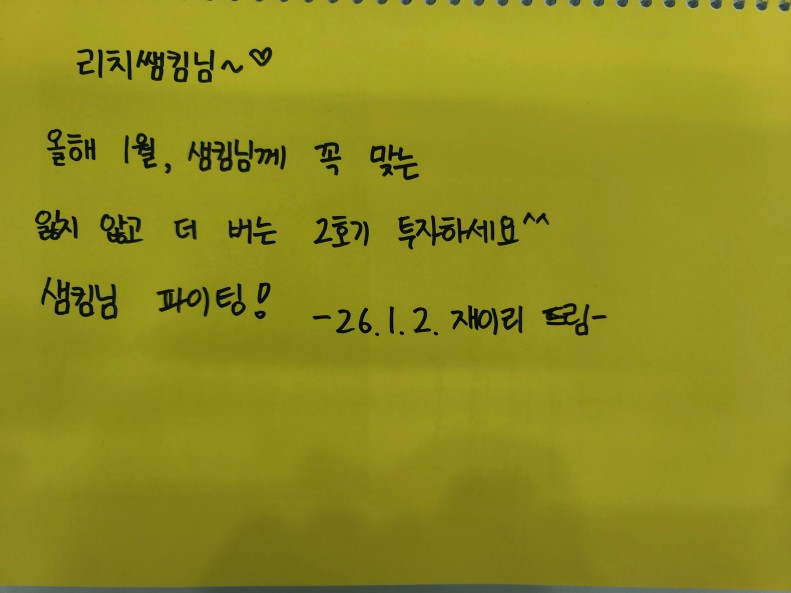 리치쌤킴님~♡
올해 1월, 샘킴님께 꼭 맞는
잃지 않고 더 버는 2호기 투자하세요^^
샘킴님 파이팅!
-26.1.2. 재이리 드림-